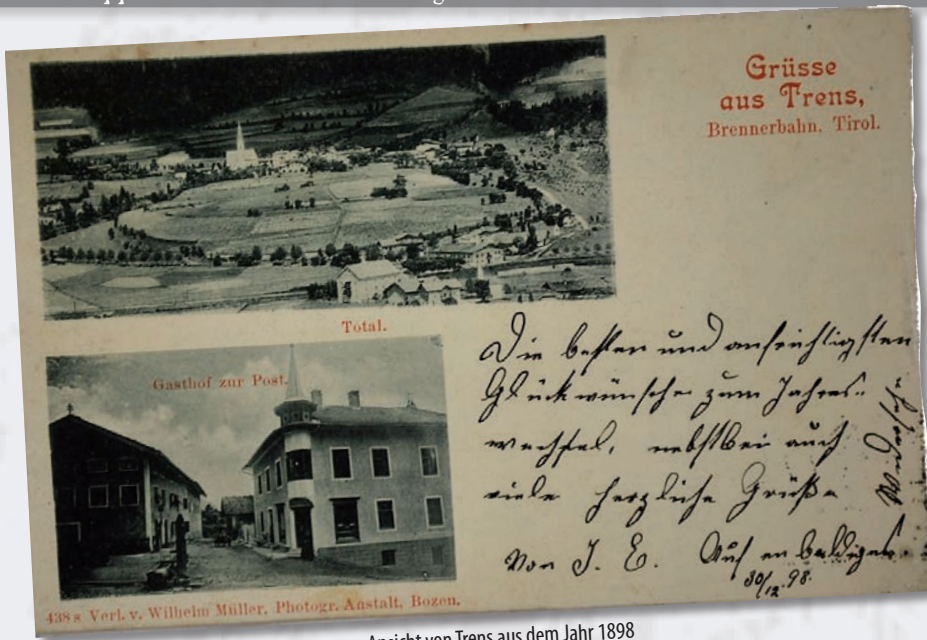 Grüsse
aus Trens,
Brennerbahn, Tirol.
Total.
Gasthof zur Post.
Die besten und aufrichtigsten
Glückwünsche zum Jahres-
wechsel, nebstbei auch
viele herzliche Grüße
Von J. E. Auf en baldiges
Wiedersehen
30/12 98.
438 s Verl. v. Wilhelm Müller, Photogr. Anstalt, Bozen.
Ansicht von Trens aus dem Jahr 1898